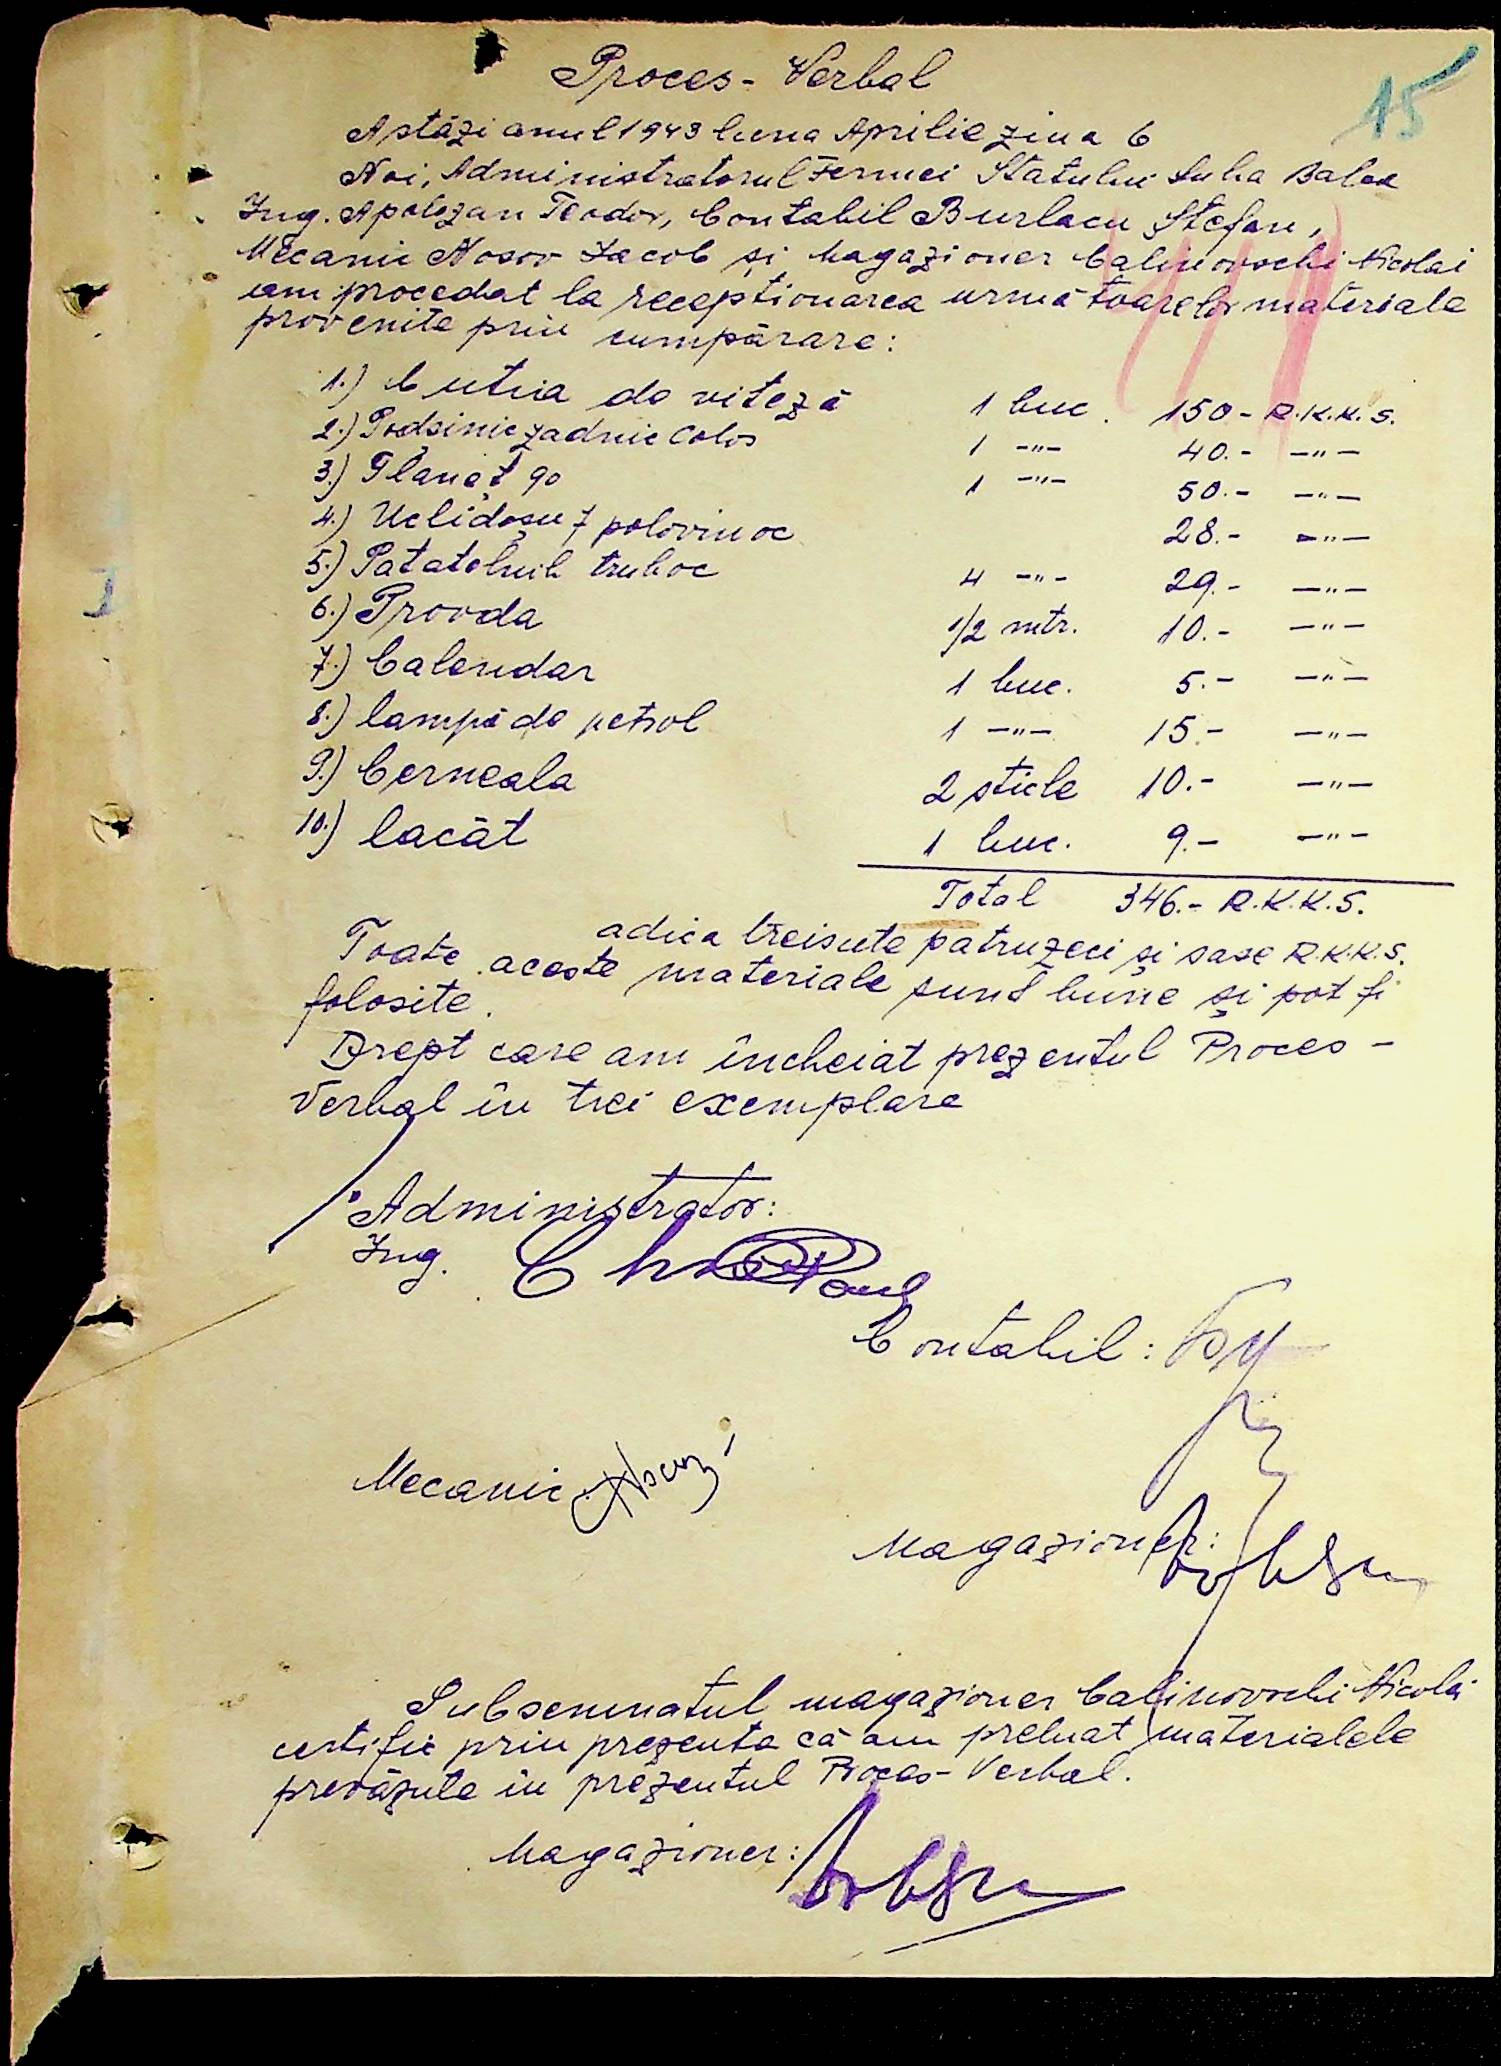 15
Proces-Verbal
Astăzi anul 1943 luna Aprilie ziua 6
Noi, Administratorul Fermei Statului Suha Balca
Ing. Apolozan Teodor, Contabil Burlacu Ștefan,
Mecanic Nosov Iacob și Magazioner Calinovschi Nicolai
am procedat la recepționarea următoarelor materiale
provenite prin cumpărare:
1.) Cutia de viteză 1 buc. 150- R.K.K.S.
2.) Podșinic zadnic Colos 1 -"- 40.- -"-
3.) Planet 90 1 -"- 50.- -"-
4.) polovinoc 28.- -"-
5.) Patatelnih truboc 4 -"- 29.- -"-
6.) Provda 1/2 mtr. 10.- -"-
7.) Calendar 1 buc. 5.- -"-
8.) lampă de petrol 1 -"- 15.- -"-
9.) Cerneala 2 sticle 10.- -"-
10.) lacăt 1 buc. 9.- -"-
Total 346.- R.K.K.S.
adica treisute patruzeci și sase R.K.K.S.
Toate aceste materiale sunt bune și pot fi
folosite.
Drept care am încheiat prezentul Proces-
Verbal în trei exemplare
Administrator:
Ing.
Contabil:
Mecanic
Magazioner:
Subsemnatul magazioner Calinovschi Nicolai
certific prin prezenta că am preluat materialele
prevăzute în prezentul Proces-Verbal.
Magazioner: